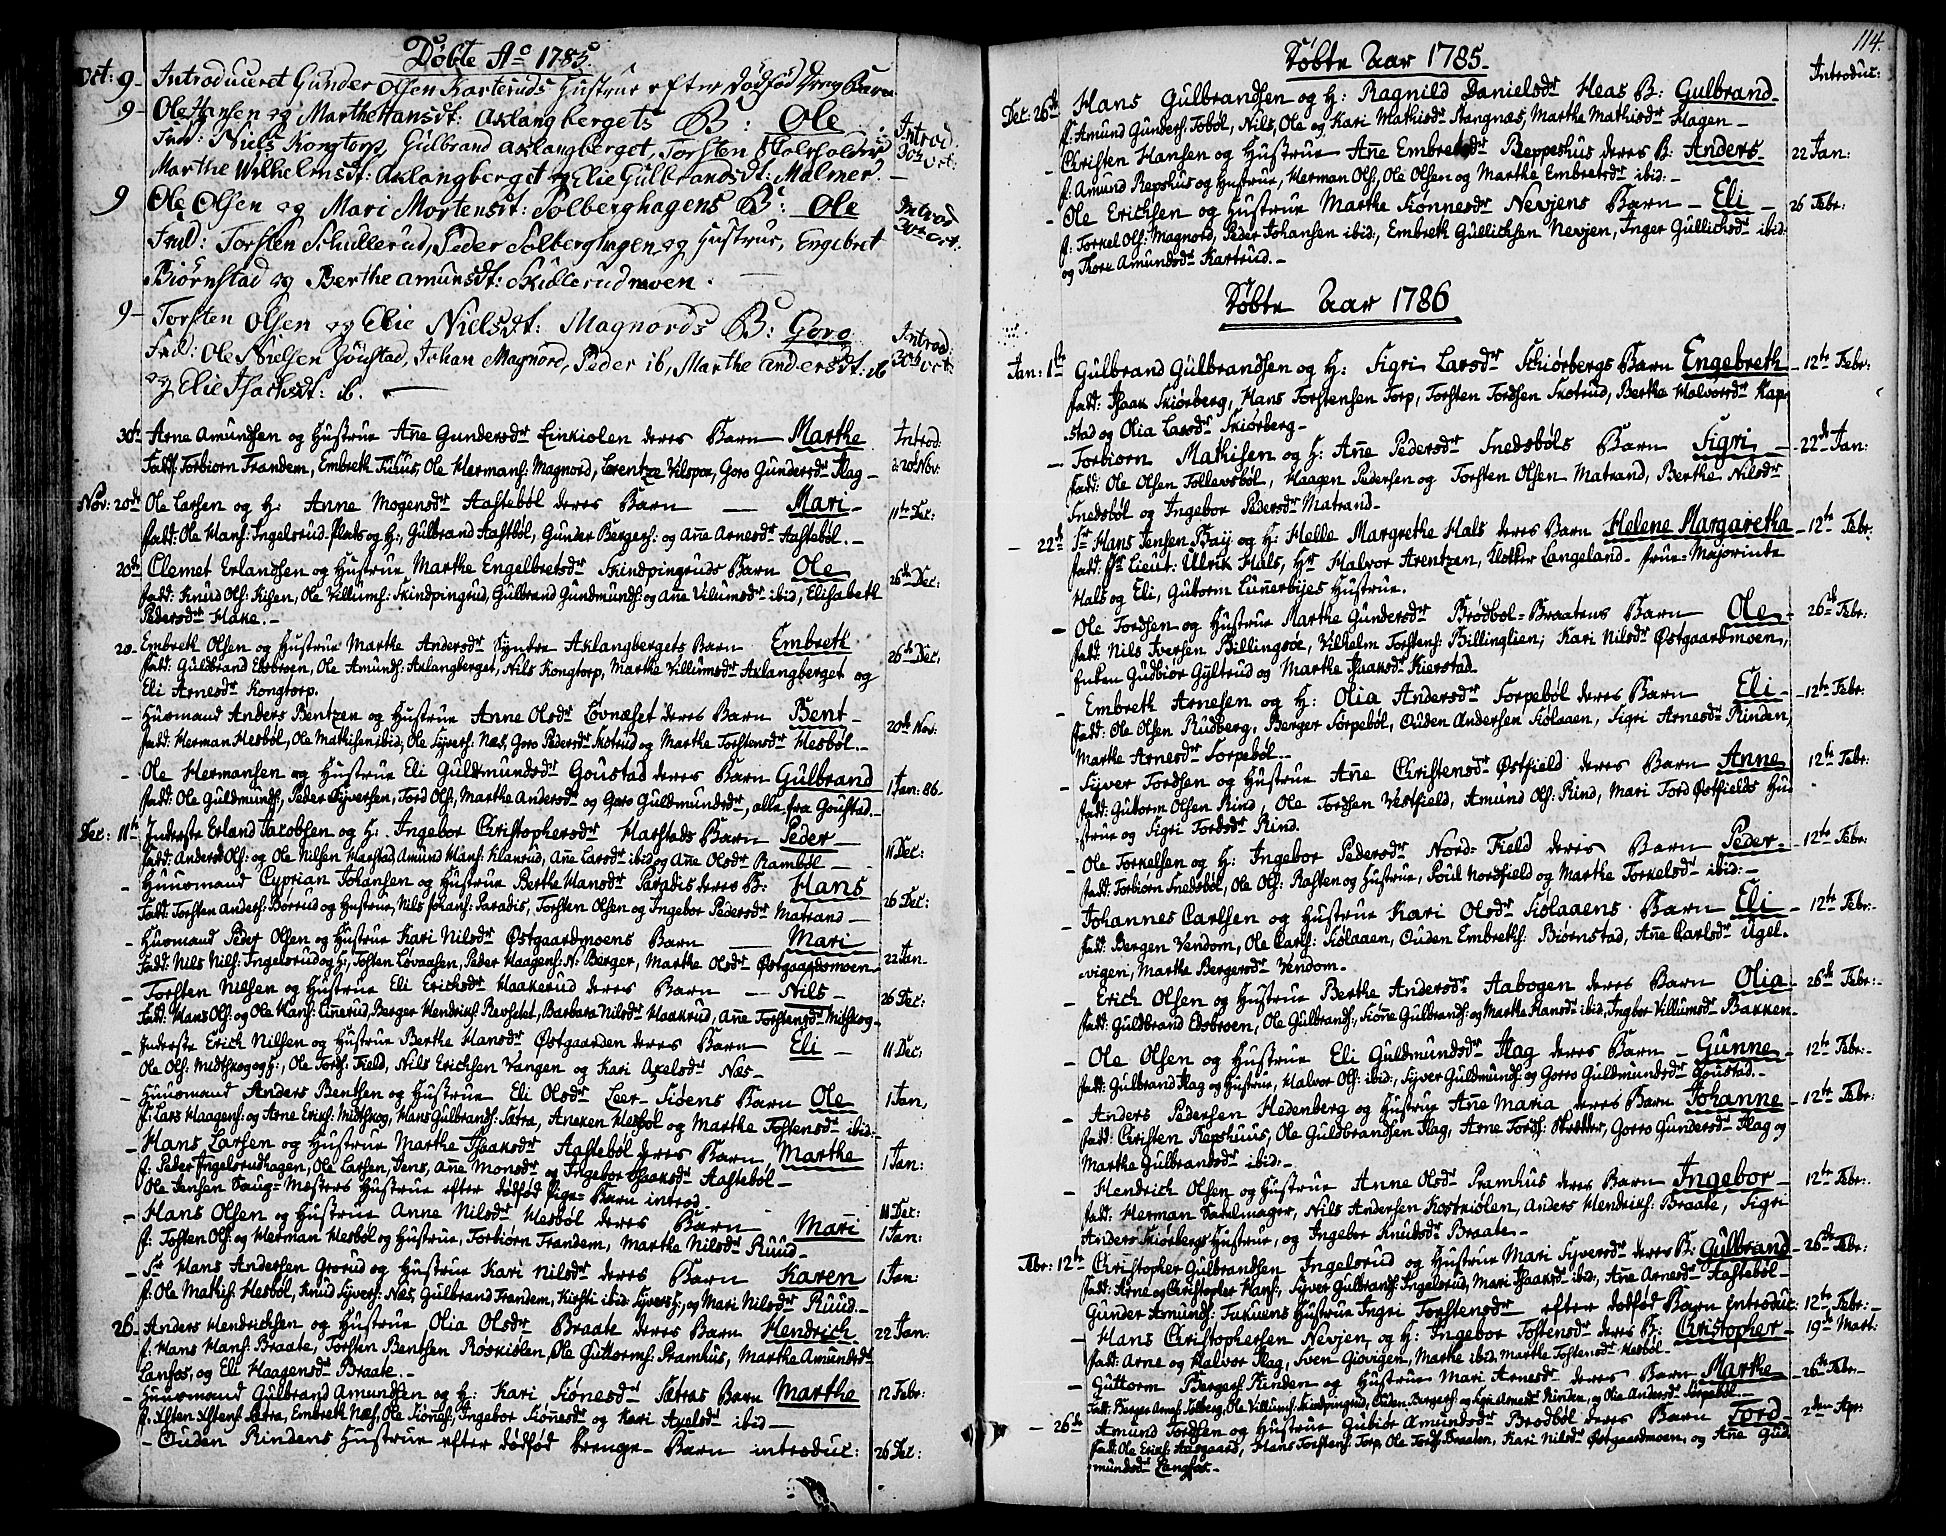 Døbte Ao 1785.
Oct: 9 - Introduceret Gunder Olsen Karteruds Hustrue efter dødfød Dreng Barn
9 - Ole Hansen og Marthe Hansdt: Axlangbergets B: Ole Introd.
Fad: Niels Kongtorp, Gulbrand Axlangberget, Torsten 30te Oct:
Marthe Wilhelmsdt: Axlangberget og Elie Gulbrandsdt: Malmer. -
9 Ole Olsen og Mari Mortensdt: Solberghagens B: Ole Introd
Fad: Torsten Schullerud, Peder Solberghagen og Hustrue, Engebret 30te Oct.
Biørnstad og Berthe Amunsdt: Skullerudmoen.
9 - Torsten Olsen og Elie Nielsdt: Magnords B: Goro Introd:
Fad: Ole Nielsen Goustad, Johan Magnord, Peder ib, Marthe Andersdt: ib 30te Oct:
og Elie Isachsdt: ib. -
30te Arne Amundsen og Hustrue Anne Gundersdr Linkiolen deres Barn Marthe Introd
Fadd: Torbiørn Trandem, Embreth Fuhus, Ole Hermans: Magnord, Lorentze Vilspox, Goro Gundersdr Flag - 20de Nov:
Nov: 20de Ole Larsen og H: Anne Mogensdr Aastebøl deres Barn - Mari - 11te Dec:
Fadd: Ole Hans: Ingelsrud-Plads og H:, Gulbrand Aastbøl, Gunder Bergers: og Anne Arnesdr Aastebøl. -
20de Clemet Erlandsen og Hustrue Marthe Engelbretsdr Skindpingruds Barn Ole 26de Dec:
Fadd: Knud Ols: Kisen, Ole Villums: Skindpingrud, Gulbrand Gundmunds: og Anne Vilumsdr ibid, Elisabeth
Pedersdr Hake. -
20 - Embreth Olsen og Hustrue Marthe Andersdr Syntre Axlangbergets Barn Embreth 26de Dec.
Fadd: Guldbrand Edsbroen, Ole Amunds: Axlangberget, Nils Kongtorp, Marthe Villumsdr Axlangberget og
Eli Arnesdr Kongtorp.
- Huusmand Anders Bentzen og Hustrue Anne Olsdr Løvnæset deres Barn Bent - 20de Nov:
Fadd: Herman Hesbøl, Ole Mathisen ibid, Ole Syvers: Næs, Goro Pedersdr Skotrud og Marthe Torstensdr Hesbøl. -
- Ole Hermansen og Hustrue Eli Guldmundsdr Goustad deres Barn Gulbrand 1 Jan: 86.
Fadd: Ole Guldmunds:, Peder Syversen, Tord Ols:, Marthe Andersdr og Goro Guldmundsdr, alle fra Goustad. -
Dec: 11te Inderste Erland Jacobsen og H: Ingebor Christophersdr Harstads Barn Peder -
Fadd: Anders Ols: og Ole Nilsen Harstad, Amund Hans: Klanrud, Anne Larsdr ibid og Anne Olsdr Rambøl - 11 Dec:
- Huusmand Cyprian Johansen og Hustrue Berthe Hansdr Paradis deres B: Hans 26 Dec:
Fadd: Torsten Anders: Børrud og Hustrue, Nils Johans: Paradis, Torsten Olsen og Ingebor Pedersdr Matrand -
- Huusmand Peder Olsen og Hustrue Kari Nilsdr Østgaardmoens Barn - Mari
Fadd: Nils Nils: Ingelsrud og H:, Tosten Løvaasen, Peder Haagens: N: Berger, Marthe Olsdr Østgaardsmoen 22 Jan -
- Torsten Nilsen og Hustrue Eli Ericksdr Haakerud deres Barn - Nils - 26 Dec:
Fadd: Hans Ols: og Ole Hans: Linerud, Berger Hendrichs: Revsetet, Barbara Nilsdr Haakrud, Anne Torstensdr Midskog -
- Inderste Erich Nilsen og Hustrue Berthe Hansdr Østgaarden deres Barn Eli - 11 Dec:
Ole Ols: Midtskog og H:, Ole Tords: Field, Nils Erichsen Vangen og Kari Axelsdr Næs -
- Huusmand Anders Benthsen og Hustrue Eli Olsdr Leer-Siøens Barn Ole 1 Jan,
f: Lars Haagens: og Arne Erics: Midtskog, Hans Gulbrands: Sætra, Aneken Hesbøl og Marthe Tostensdr ibid: -
- Hans Larsen og Hustrue Marthe Isaaksdr Aastebøl deres Barn Marthe 1 Jan:
f: Peder Ingelsrudhagen, Ole Larsen, Jens, Ane Monsdr og Ingebor Isaaksdr Aastebøl -
Ole Jensen Saug-Mesters Hustrue efter dødfød Pige-Barn introd. 11 Dec:
- Hans Olsen og Hustrue Anne Nilsdr Hesbøl deres Barn Mari 1 Jan:
f: Tosten Ols: og Herman Hesbøl og Hustrue, Torbiørn Trandem, Marthe Nilsdr Ruud -
- Sr Hans Andersen Grorud og Hustrue Kari Nilsdr deres Barn Karen 1 Jan:
f: Ole Mathis: Hesbøl, Knud Syvers: Næs, Gulbrand Trandem, Kirsti ibid: Syvers H:, og Mari Nilsdr Ruud -
26 - Anders Hendrichsen og Hustrue Olia Olsdr Braate deres Barn Hendrich 22 Jan:
f: Hans Hans: Braate, Torsten Bentsen Røskiølen, Ole Guttorms: Pramhus, Marthe Amundsdr
Lanfos, og Eli Haagensdr Braate. -
- Huusmand Gulbrand Amundsen og H: Kari Siønesdr Sætras Barn Marthe 12 Febr:
f: Ysten Ystens: Sætra, Embreth Næs, Ole Siønes:, Ingebor Siønesdr og Kari Axelsdr ibid -
- Ouden Rindens Hustrue efter dødfød Drenge-Barn introduc: 26 Dec:
114.
Døbte Aar 1785 - Introduc:
Dec: 26de Hans Gulbrandsen og H: Ragnild Danielsdr Heas B: Gulbrand
f: Amund Gunders: Tobøl, Nils, Ole og Kari Mathisdr Stangnæs, Marthe Mathisdr Hagen -
- Christen Hansen og Hustrue Anne Embretsdr Reppeshus deres B: Anders - 22 Jan:
f: Amund Repshus og Hustrue, Herman Ols:, Ole Olsen og Marthe Embretsdr ibid: -
- Ole Erichsen og Hustrue Marthe Siønnesdr Nevjens Barn - Eli - 26 Febr:
f: Torkel Ols: Magnord, Peder Johansen ibid:, Embreth Gullichsen Nevjen, Inger Gullichsdr ibid:
og Thore Amundsdr Kartrud. -
Døbte Aar 1786
Jan: 1te Gulbrand Gulbrandsen og H: Sigri Larsdr Skiørbergs Barn Engebreth - 12te Febr:
Fadd: Isaak Skiørberg, Hans Torstensen Torp, Torsten Tordsen Skotrud, Berthe Halvorsdr Hap-
stad og Olia Larsdr Skiørberg -
- Torbiørn Mathisen og H: Anne Pedersdr Snedsbøls Barn Sigri - 22de Jan:
Fadd: Ole Olsen Tollevsbøl, Haagen Pedersen og Torsten Olsen Matrand, Berthe Nilsdr
Snedsbøl og Ingebor Pedersdr Matrand -
- 22de Sr Hans Jensen Baij og H: Helle Margrethe Hals deres Barn Helene Margaretha - 12te Febr:
Fadd: Pr Lieut: Ulrik Hals, Hr Halvor Arentzen, Klokker Langeland - Frue-Majorinde
Hals og Eli, Guttorm Lunnerbyes Hustrue.
- Ole Tordsen og Hustrue Marthe Gundersdr Brødbøl-Braatens Barn Ole - 26de Febr:
Fadd: Nils Iversen Billingsøe, Vilhelm Torstens: Billinglien, Kari Nilsdr Østgaardmoen,
Enken Gudbiør Gyltrud og Marthe Isaaksdr Kierstad.
- Embreth Arnesen og H: Olia Andersdr Sorpebøl deres Barn Eli - 12te Febr:
Fadd: Ole Olsen Rudberg, Berger Sorpebøl, Ouden Andersen Siølaaen, Sigri Arnesdr Rinden,
Marthe Arnesdr Sorpebøl -
- Syver Tordsen og Hustrue Anne Christensdr Østfield deres Barn Anne 12te Febr:
Fadd: Guttorm Olsen Rind, Ole Tordsen Vestfield, Amund Ols: Rind, Mari Tord Østfields Hu-
strue og Sigri Tordsdr Rind.
- Ole Torkelsen og H: Ingebor Pedersdr Nord-Field deres Barn Peder - 12te Febr:
Fadd: Torbiørn Snedsbøl, Ole Ols: Rasten og Hustrue, Poul Nordfield og Marthe Torkelsdr ibid: -
- Johannes Carlsen og Hustrue Kari Olsdr Siølaaens Barn Eli - 12te Febr: -
Fadd: Bergen Vendom, Ole Carls: Siølaaen, Ouden Embreths: Biørnstad, Anne Carlsdr Ugel-
vigen, Marthe Bergersdr Vendom -
- Erich Olsen og Hustrue Berthe Andersdr Aabogen deres Barn Olia - 26de Febr: -
Fadd: Guldbrand Edsbroen, Ole Gulbrands:, Siøne Gulbrands: og Marthe Hansdr ibid, Ingbor Villumsdr Bakken -
- Ole Olsen og Hustrue Eli Guldmundsdr Flag deres Barn - Gunne - 12te Febr: -
Fadd: Gulbrand Flag og Hustrue, Halvor Ols: ibid:, Syver Guldmunds: og Gorro Guldmundsdr Goustad. -
- Anders Pedersen Hedenberg og Hustrue Anne Maria deres Barn Johanne - 12te Febr:
Fadd: Christen Repshuus, Ole Guldbrandsen Flag, Arne Tords: , Gorro Gundersdr Flag og
Marthe Gulbrandsdr ibid: -
- Hendrich Olsen og Hustrue Anne Olsdr Pramhus deres Barn Ingebor - 12te Febr:
Fadd: Herman Sadelmager, Nils Andersen Kostkiølen, Anders Hendrichs: Braate, Sigri
Anders Skiørbergs Hustrue, og Ingebor Knudsdr Braate -
Febr: 12te Christopher Gulbrandsen Ingelsrud og Hustrue Mari Syversdr deres B: Gulbrand - 26de Febr:
Fadd: Arne og Christopher Hans:, Syver Gulbrands: Ingelsrud, Mari Isaaksdr ibid, Anne Arnesdr Aastebøl -
Gunder Amunds: Hustrue Ingri Torstensdr efter dødfød Barn introduc: 12te Febr: -
- Hans Christophersen Nevjen, og H: Ingebor Tostensdr deres B: Christopher - 19de Mart:
Fadd: Arne og Halvor Flag, Sven Giøvigen, Marthe ibid, Marthe Tostensdr Hesbøl -
- Guttorm Bergers: Rinden og Hustrue Mari Arnesdr deres Barn Marthe - 26de Febr: -
Fadd: Berger Arnes: Solberg, Ole Villums: Skindpingrud, Ouden Bergers: og Sigri Arnesdr Rinden, og Olia Andersdr Sorpebøl -
- 26de Amund Tordsen og Hustrue Gubiør Amundsdr Brødbøl deres Barn Tord 2den Apr:
Fadd: Ole Erics: Aasgaard, Hans Torstens: Torp, Ole Tords: Braaten, Kari Nilsdr Østgaardmoen, og Anne Gud-
mundsdr Langfos. -